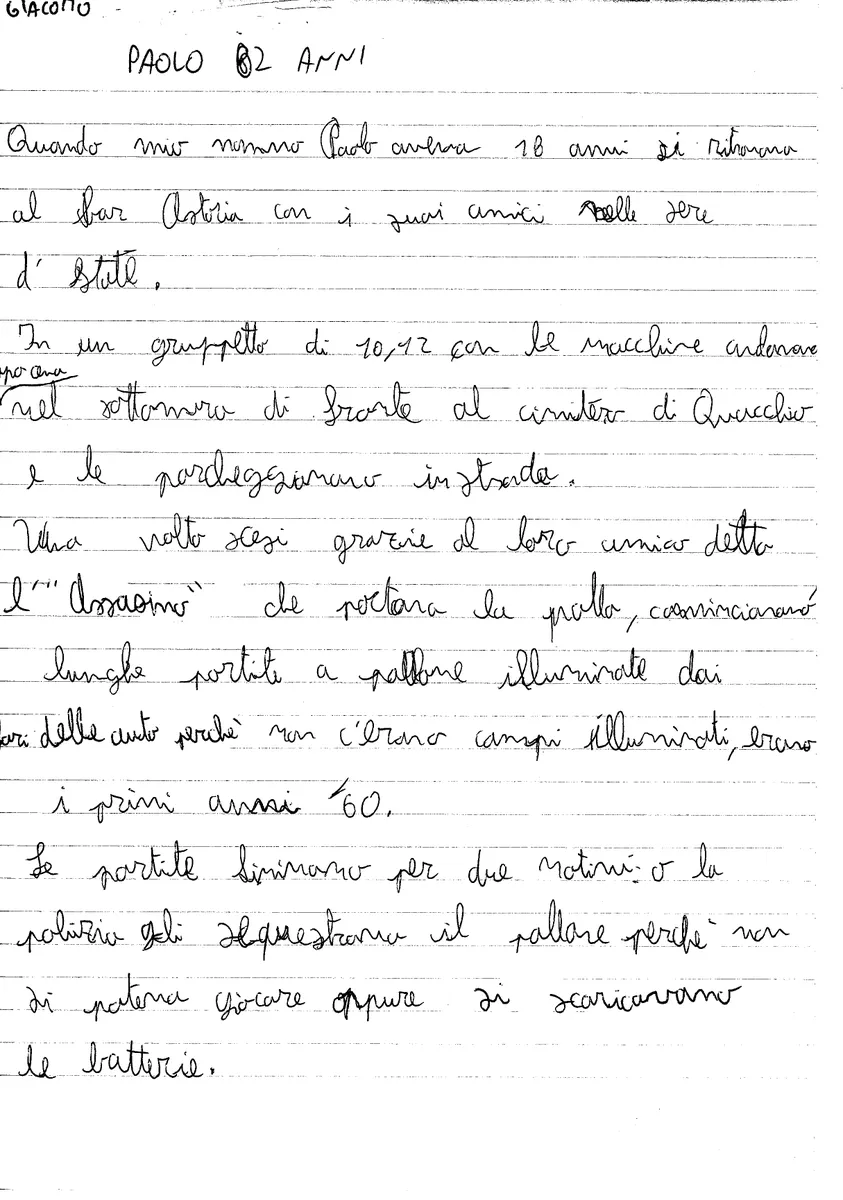 GIACOMO
PAOLO 82 ANNI
Quando mio nonno Paolo aveva 18 anni si ritrovava
al bar Astoria con i suoi amici nelle sere
d' state.
In un gruppetto di 10,12 con le macchine andavano
po cena
nel sottomura di fronte al cimitero di Quacchio
e le parcheggiavano in strada.
Una volta scesi grazie al loro amico detto
l'"Assasino" che portava la palla, cominciavano
lunghe partite a pallone illuminate dai
fari delle auto perchè non c'erano campi illuminati, erano
i primi anni '60.
Le partite finivano per due motivi: o la
polizia gli sequestrava il pallone perchè non
si poteva giocare oppure si scaricavano
le batterie.